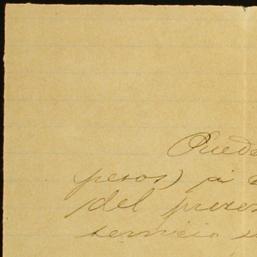 Puede
pesos) á
del prese
servicio